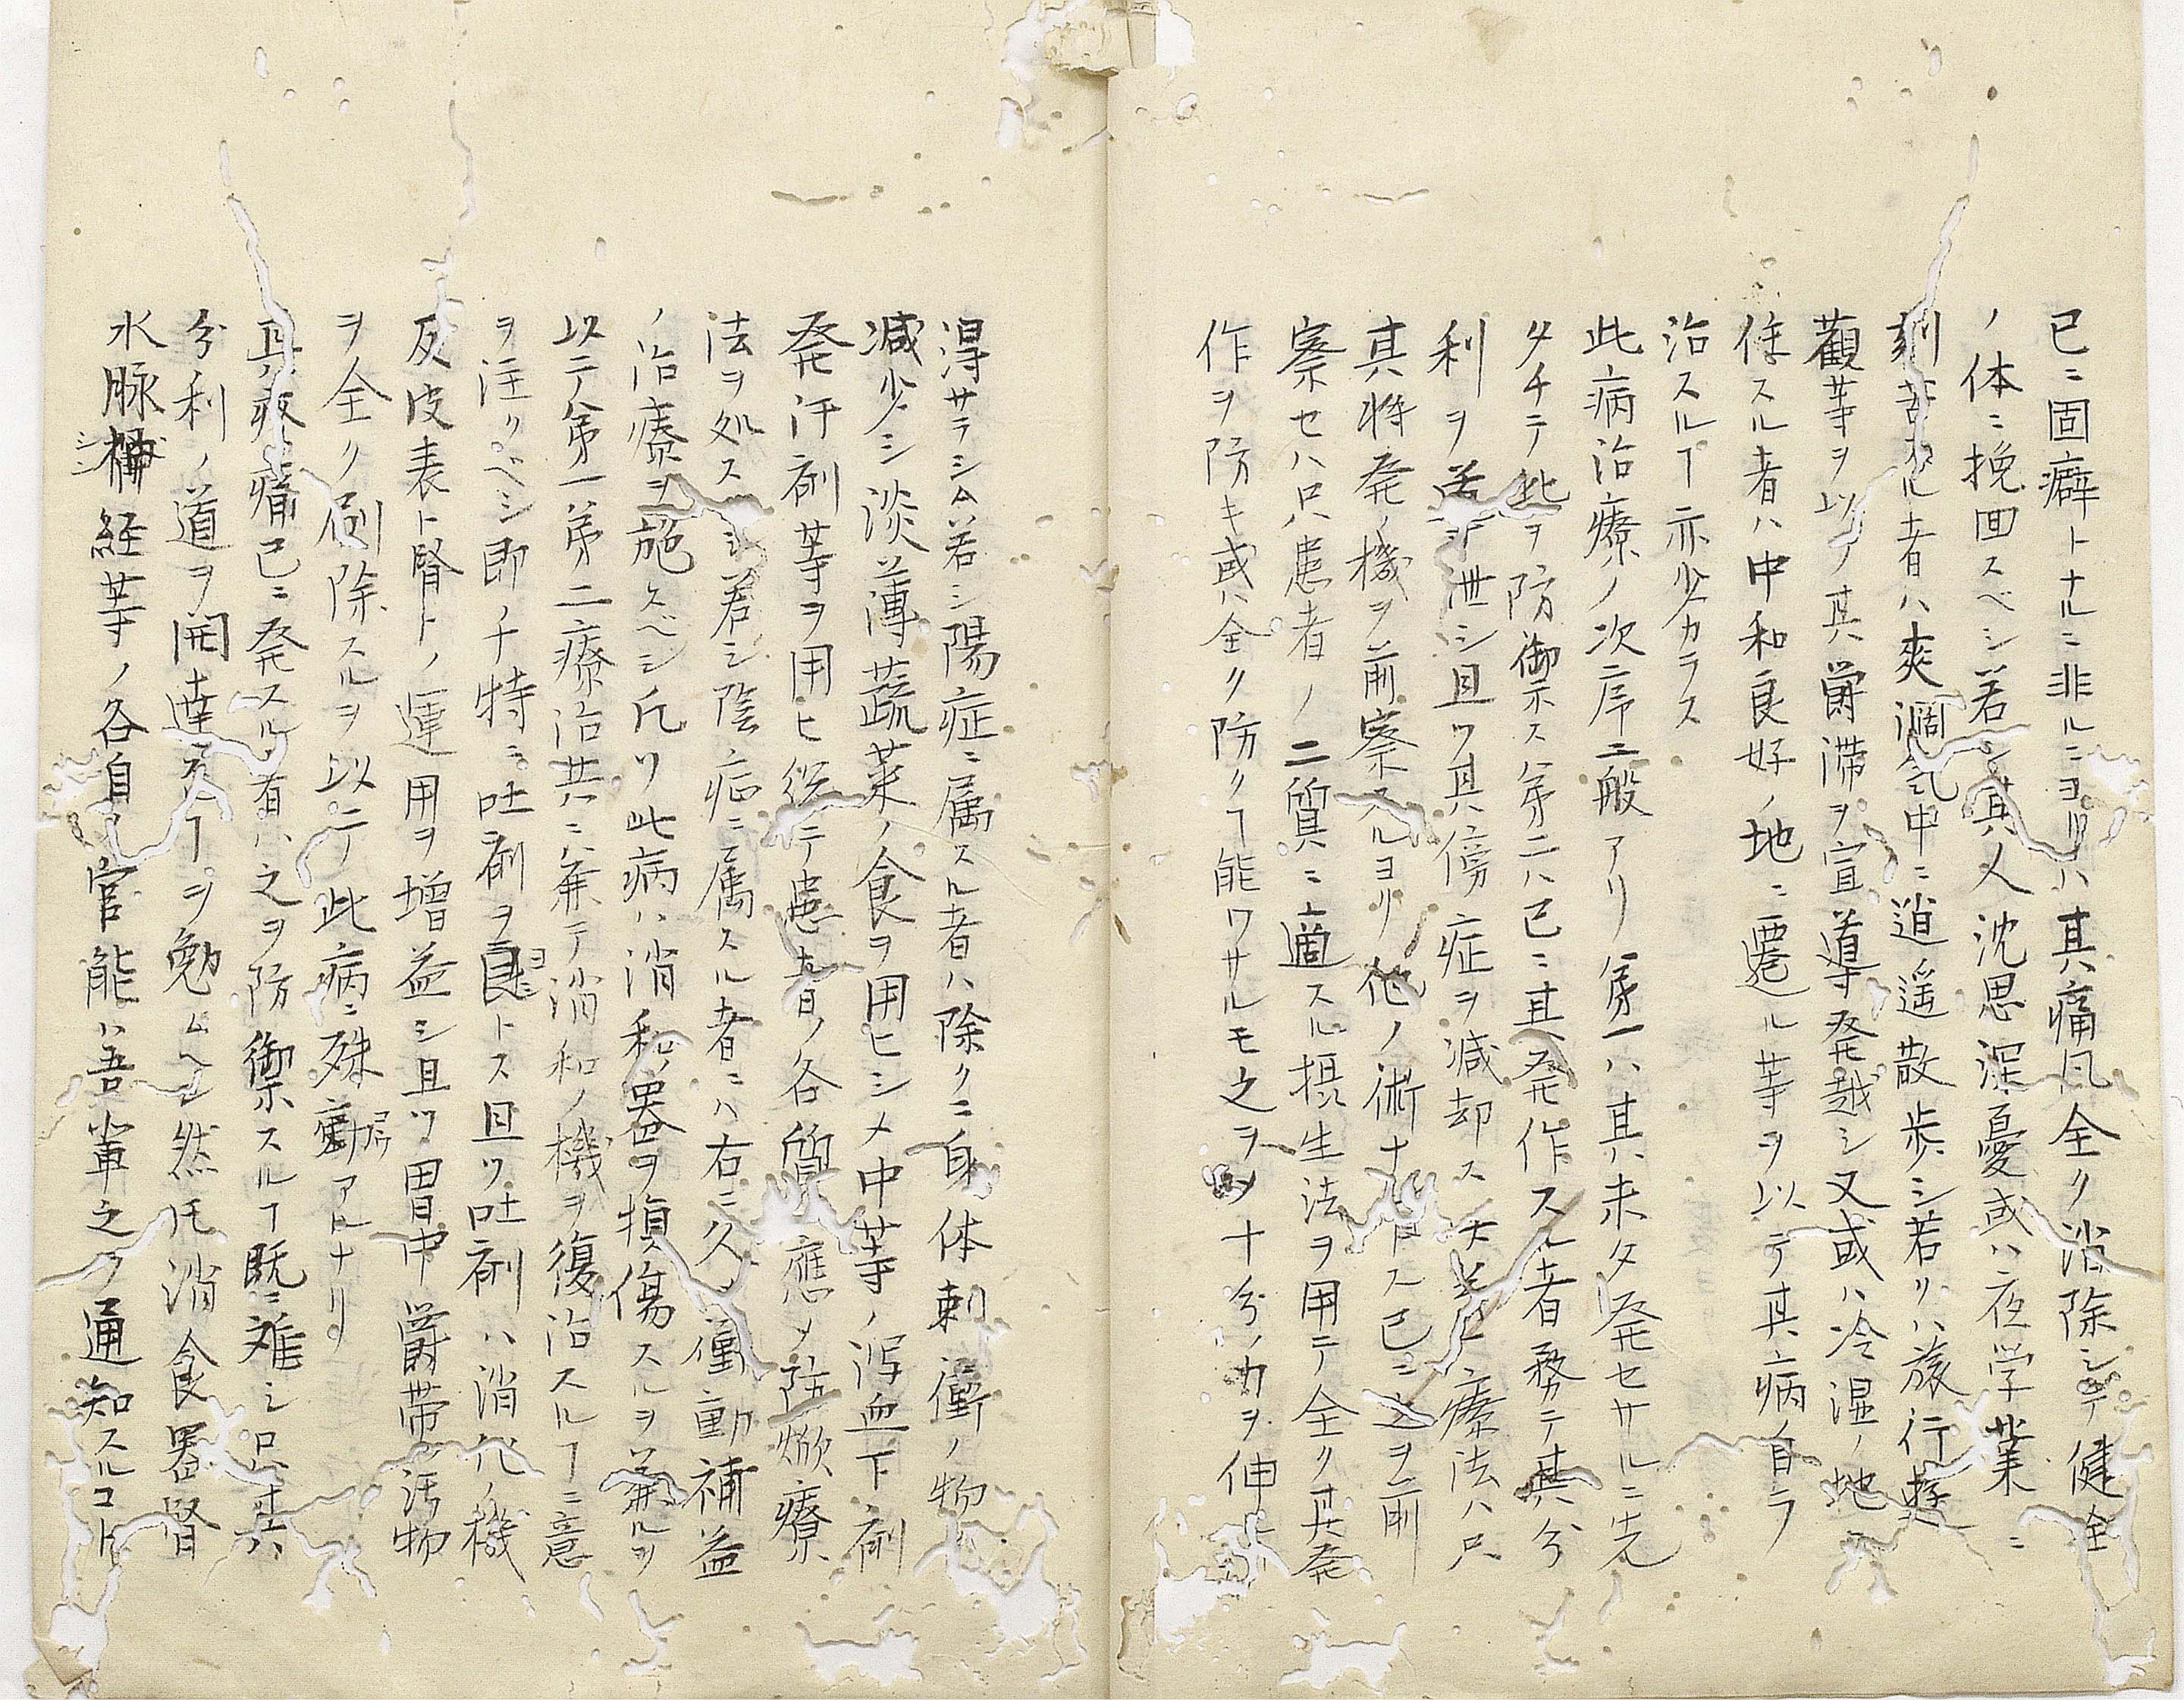 已ニ固癖トナルニ非ルニヨリハ其痛風全ク消除シテ健全
ノ体ニ挽回スベシ若シ其人沈思深憂或ハ夜学業ニ
刻苦スル者ハ爽濶気中ニ逍遥散歩シ若クハ旅行遊
観等ヲ以テ其欝滞ヲ宣導発越シ又或ハ冷湿ノ地ニ
住スル者ハ中和良好ノ地ニ遷ル等ヲ以テ其病ノ自ラ
治スルヿ亦少カラス
此病治療ノ次序二般アリ第一ハ其未タ発セサルニ先
タチテ此ヲ防御ス第二ハ已ニ其発作スル者務テ其分
利ヲ導泄シ且ツ其傍症ヲ減却ス 療法ハ只
其将発ノ機ヲ前察スルヨリ他ノ術ナ ス已ニ之ヲ前
察セハ只患者ノ二質ニ適スル摂生法ヲ用テ全ク其発
作ヲ防キ或ハ全ク防クヿ能ワサルモ之ヲ〆十分ノ力ヲ伸
得サラシム若シ陽症ニ属スル者ハ除クニ身体刺衝ノ物
減少シ淡薄蔬菜ノ食ヲ用ヒシメ中等ノ瀉血下剤
発汗剤等ヲ用ヒ従テ患者ノ各質 應〆防焮療
法ヲ処スベシ若シ陰症ニ属スル者ニハ右ニ久 衝動補益
ノ治療ヲ施スベシ凡ソ此病ハ消和器ヲ損傷スルヲ兼ルヲ
以テ第一第二療治共ニ兼テ消和ノ機ヲ復治スルヿニ意
ヲ注クベシ即チ特ニ吐剤ヲ良ヨトス且ツ吐剤ハ消化ノ機
及皮表ト腎トノ運用ヲ増益シ且ツ胃中欝帯ノ汚物
ヲ全ク刷除スルヲ以テ此病ニ殊効アルナリ
其疼痛已ニ発スル者ハ之ヲ防禦スルヿ既ニ難シ只其
分利ノ道ヲ開達スルヿヲ勉ムヘシ然𪜈消食器督
水脉神シン経等ノ各自ノ官能ハ吾輩之ヲ通知スルコト